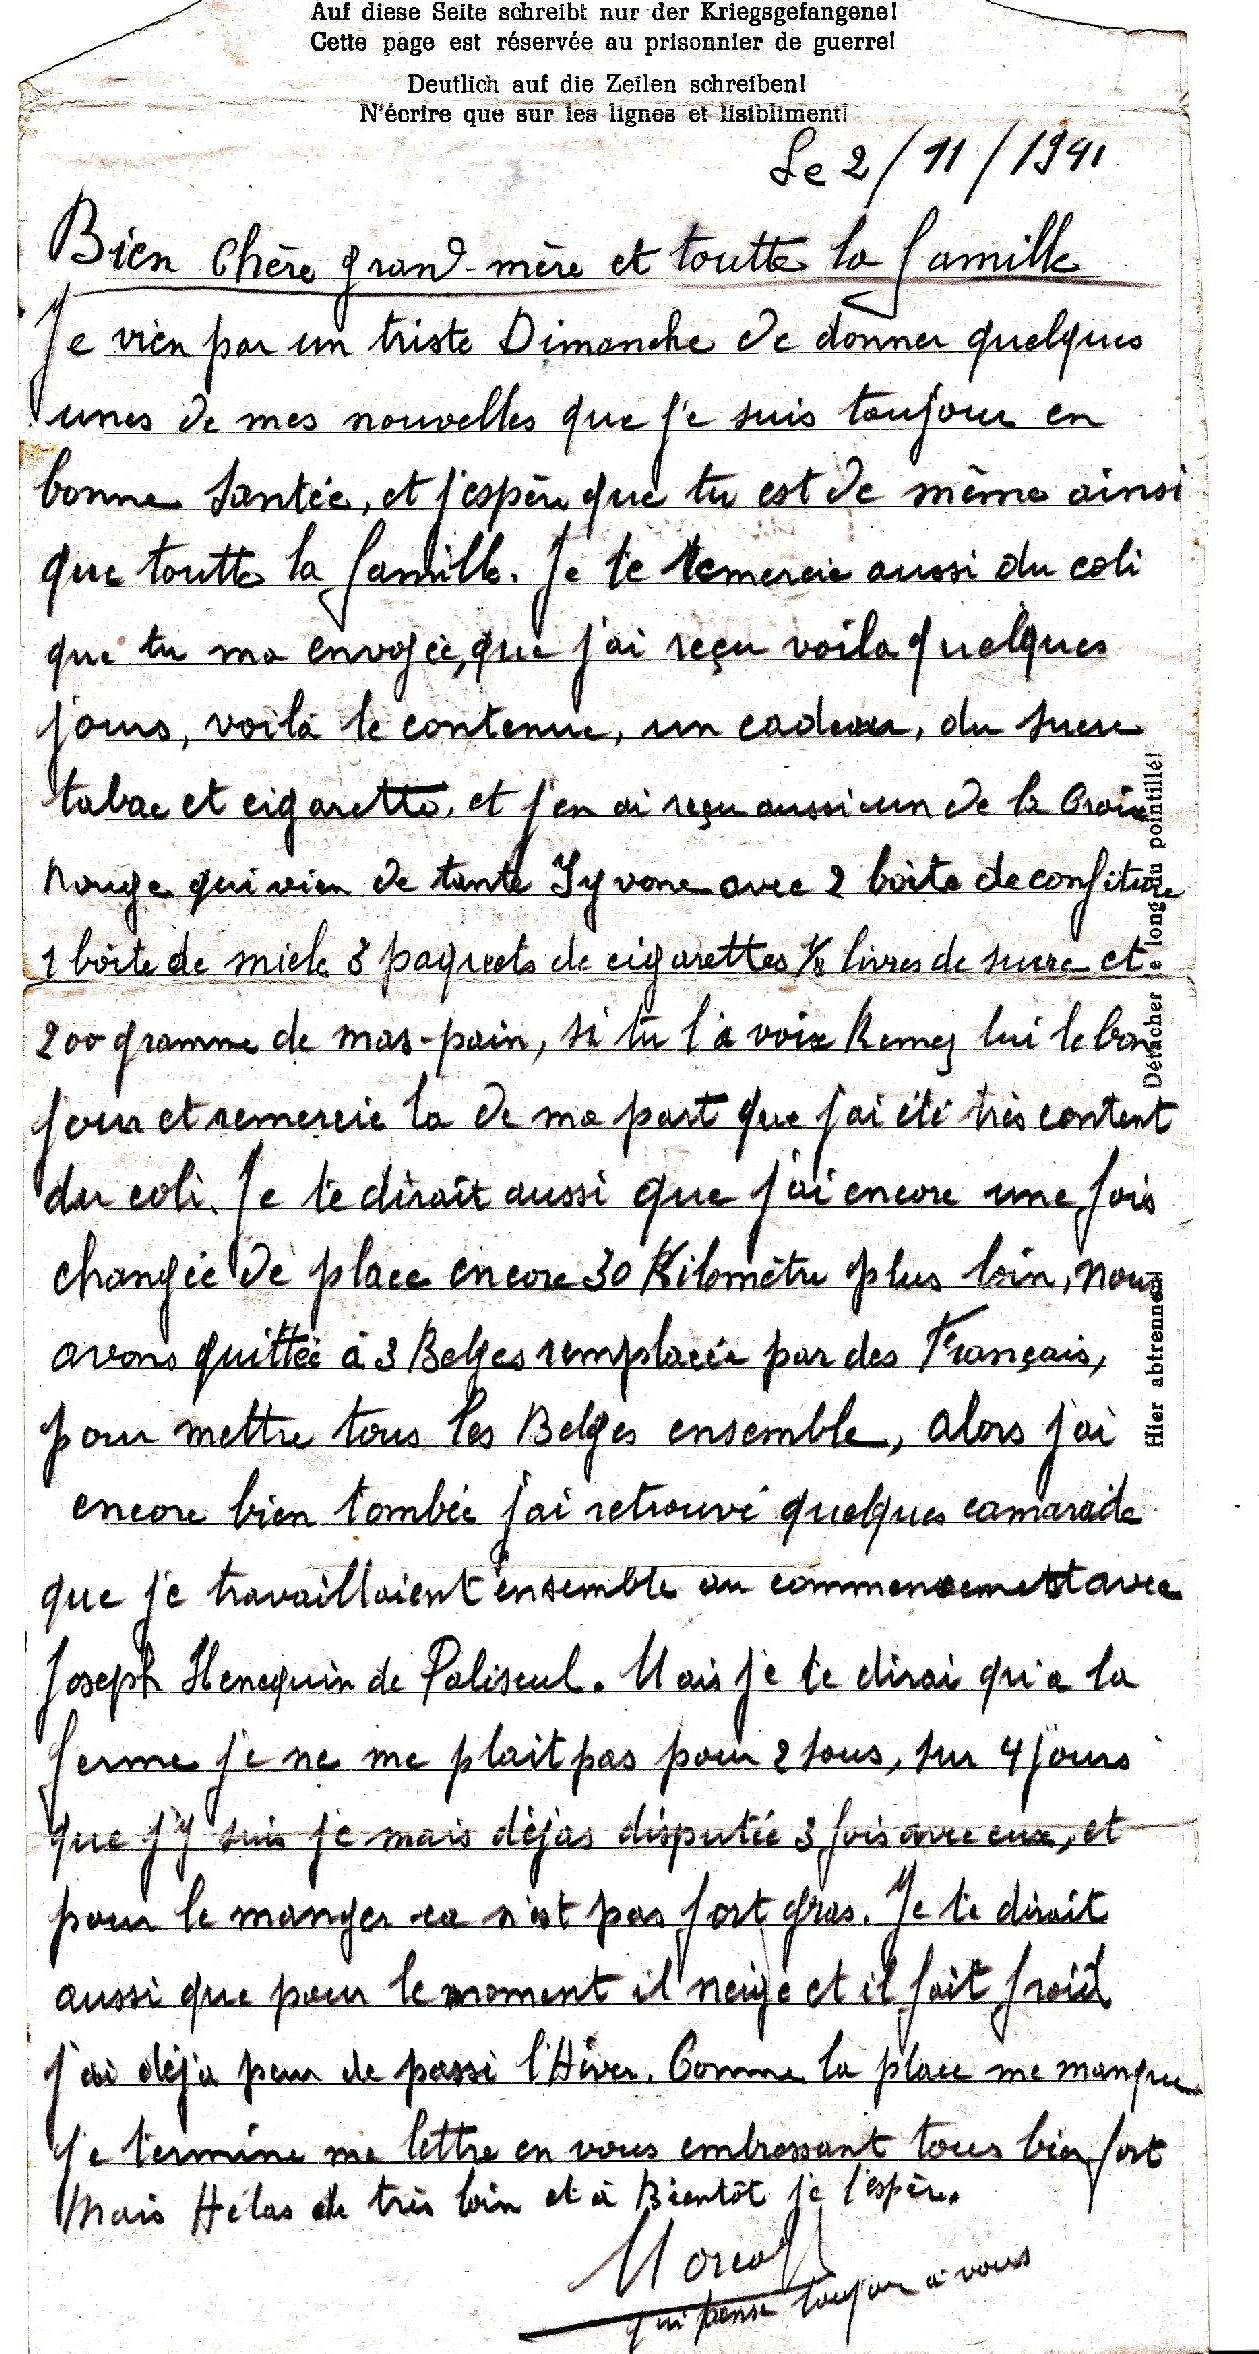 Auf diese Seite schreibt nur der Kriegsgefangene!
Cette page est réservée au prisonnier de guerre!
Deutlich auf die Zeilen schreiben!
N'écrire que sur les lignes et lisibliment!
Le 2/11/1941
Bien Chère grand-mère et toutte la famille
Je vien par un triste Dimanche de donner quelques
unes de mes nouvelles que je suis toujour en
bonne Santée, et j'espère que tu est de même ainsi
que toutte la famille. Je te remercie aussi du coli
que tu ma envoyée, que j'ai reçu voila quelques
jours, voilà le contenue, un cadeau, du sucre
tabac et cigarette, et j'en ai reçu aussi un de la Croix
Rouge qui vien de tante Yvone avec 2 boîte de confiture
1 boîte de miele 3 paquets de cigarettes ½ livres de sucre et
200 gramme de mas-pain, si tu l'a voix Remez lui le bon
jour et remercie la de ma part que j'ai été très content
du coli. Je te dirait aussi que j'ai encore une fois
changée de place encore 30 Kilomètre plus loin, nous
avons quittée à 3 Belges remplacée par des Français,
pour mettre tous les Belges ensemble, alors j'ai
encore bien tombée j'ai retrouvé quelques camarade
que je travaillaient ensemble au commencement avec
Joseph Henequin de Paliseul. Mais je te dirai qu'a la
ferme je ne me plait pas pour 2 sous, sur 4 jours
que j'y suis je mais déjas disputée 3 fois avec eux, et
pour le manger ca n'est pas fort gras. Je te dirait
aussi que pour le moment il neige et il fait froid
j'ai déja peur de passé l'Hiver. Comme la place me manque
je termine me lettre en vous embrassant tous bien fort
Mais Hélas de très loin et à Bientôt je l'espère.
Marcel
qui pense toujour à vous
Détacher le long du pointillé!
Hier abtrennen!